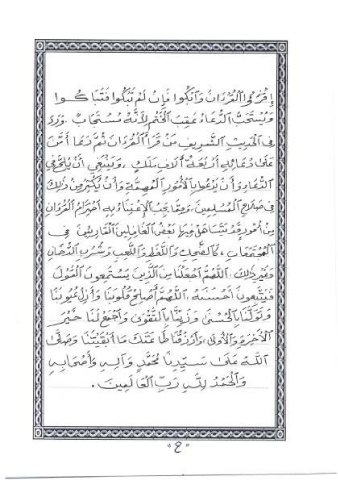 اِقْرَءُوا الْقُرْءَانَ وَابْكُوا فَإِنْ لَمْ تَبْكُوا فَتَبَاكَوا
وَيُسْتَحَبُّ الدُّعَاءُ عَقِبَ الْخَتْمِ لِأَنَّهُ مُسْتَجَابٌ وَرَدَ
فِي الْحَدِيثِ الشَّرِيفِ مَنْ قَرَأَ الْقُرْءَانَ ثُمَّ دَعَا أَمَّنَ
عَلَى دُعَائِهِ أَرْبَعَةُ آلَافِ مَلَكٍ، وَيَنْبَغِي أَنْ يُلِحَّ فِي
الدُّعَاءِ وَأَنْ يَدْعُوَ بِالْأُمُورِ الْمُهِمَّةِ وَأَنْ يُكْثِرَ مِنْ ذَلِكَ
فِي صَلَاحِ الْمُسْلِمِينَ، وَمِمَّا يَجِبُ الْإِعْتِنَاءُ بِهِ احْتِرَامُ الْقُرْءَانِ
مِنْ أُمُورٍ قَدْ يَتَسَاهَلُ فِيهَا بَعْضُ الْغَافِلِينَ الْقَارِئِينَ فِي
الْمُجْتَمَعَاتِ، كَالضَّحِكِ وَاللَّغَطِ وَاللَّعِبِ وَشُرْبِ الدُّخَانِ
وَغَيْرِ ذَلِكَ، اللَّهُمَّ اجْعَلْنَا مِنَ الَّذِينَ يَسْتَمِعُونَ الْقَوْلَ
فَيَتَّبِعُونَ أَحْسَنَهُ، اللَّهُمَّ أَصْلِحْ قُلُوبَنَا وَأَزِلْ عُيُوبَنَا
وَتَوَلَّنَا بِالْحُسْنَى وَزَيِّنَّا بِالتَّقْوَى وَاجْمَعْ لَنَا خَيْرَ
الْآخِرَةِ وَالْأُولَى وَارْزُقْنَا طَاعَتَكَ مَا أَبْقَيْتَنَا وَصَلَّى
اللَّهُ عَلَى سَيِّدِنَا مُحَمَّدٍ وَآلِهِ وَأَصْحَابِهِ
وَالْحَمْدُ لِلَّهِ رَبِّ الْعَالَمِينَ.
"٤"